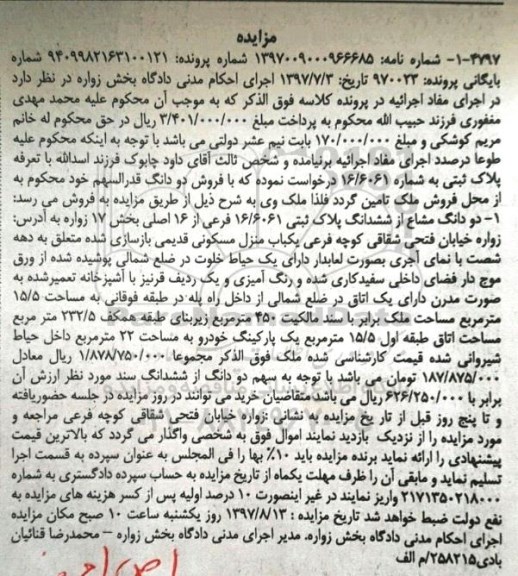 مزایده
۱-۴۷۹۷- شماره نامه: ۱۳۹۷۰۰۹۰۰۰۹۶۶۶۸۵ شماره پرونده: ۹۴۰۹۹۸۲۱۶۳۱۰۰۱۲۱ شماره
بایگانی پرونده: ۹۷۰۰۲۳ تاریخ: ۱۳۹۷/۷/۳ اجرای احکام مدنی دادگاه بخش زواره در نظر دارد
در اجرای مفاد اجرائیه در پرونده کلاسه فوق الذکر که به موجب آن محکوم علیه محمد مهدی
مغفوری فرزند حبیب الله محکوم به پرداخت مبلغ ۳/۴۰۱/۰۰۰/۰۰۰ ریال در حق محکوم له خانم
مریم کوشکی و مبلغ ۱۷۰/۰۰۰/۰۰۰ بابت نیم عشر دولتی می باشد با توجه به اینکه محکوم علیه
طوعا درصدد اجرای مفاد اجرائیه برنیامده و شخص ثالث آقای داود چابوک فرزند اسدالله با تعرفه
پلاک ثبتی به شماره ۱۶/۶۰۶۱ درخواست نموده که با فروش دو دانگ قدرالسهم خود محکوم به
از محل فروش ملک تامین گردد فلذا ملک وی به شرح ذیل از طریق مزایده به فروش می رسد:
۱- دو دانگ مشاع از ششدانگ پلاک ثبتی ۱۶/۶۰۶۱ فرعی از ۱۶ اصلی بخش ۱۷ زواره به آدرس:
زواره خیابان فتحی شقاقی کوچه فرعی یکباب منزل مسکونی قدیمی بازسازی شده متعلق به دهه
شصت با نمای آجری بصورت لعابدار دارای یک حیاط خلوت در ضلع شمالی پوشیده شده از ورق
موج دار فضای داخلی سفیدکاری شده و رنگ آمیزی و یک ردیف قرنیز با آشپزخانه تعمیرشده به
صورت مدرن دارای یک اتاق در ضلع شمالی از داخل راه پله در طبقه فوقانی به مساحت ۱۵/۵
مترمربع مساحت ملک برابر با سند مالکیت ۴۵۰ مترمربع زیربنای طبقه همکف ۲۳۲/۵ متر مربع
مساحت اتاق طبقه اول ۱۵/۵ مترمربع یک پارکینگ خودرو به مساحت ۲۲ مترمربع داخل حیاط
شیروانی شده قیمت کارشناسی شده ملک فوق الذکر مجموعا ۱/۸۷۸/۷۵۰/۰۰۰ ریال معادل
۱۸۷/۸۷۵/۰۰۰ تومان می باشد با توجه به سهم دو دانگ از ششدانگ سند مورد نظر ارزش آن
برابر با ۶۲۶/۲۵۰/۰۰۰ ریال می باشد متقاضیان خرید می توانند در روز مزایده در جلسه حضوریافته
و تا پنج روز قبل از تار یخ مزایده به نشانی زواره خیابان فتحی شقاقی کوچه فرعی مراجعه و
مورد مزایده را از نزدیک بازدید نمایند اموال فوق به شخصی واگذار می گردد که بالاترین قیمت
پیشنهادی را ارائه نماید برنده مزایده باید ۱۰٪ بها را فی المجلس به عنوان سپرده به قسمت اجرا
تسلیم نماید و مابقی آن را ظرف مهلت یکماه از تاریخ مزایده به حساب سپرده دادگستری به شماره
۲۱۷۱۳۵۰۲۱۸۰۰۰ واریز نمایند در غیر اینصورت ۱۰ درصد اولیه پس از کسر هزینه های مزایده به
نفع دولت ضبط خواهد شد تاریخ مزایده : ۱۳۹۷/۸/۱۳ روز یکشنبه ساعت ۱۰ صبح مکان مزایده
اجرای احکام مدنی دادگاه بخش زواره. مدیر اجرای مدنی دادگاه بخش زواره – محمدرضا قنائیان
بادی۲۵۸۲۱۵/م الف